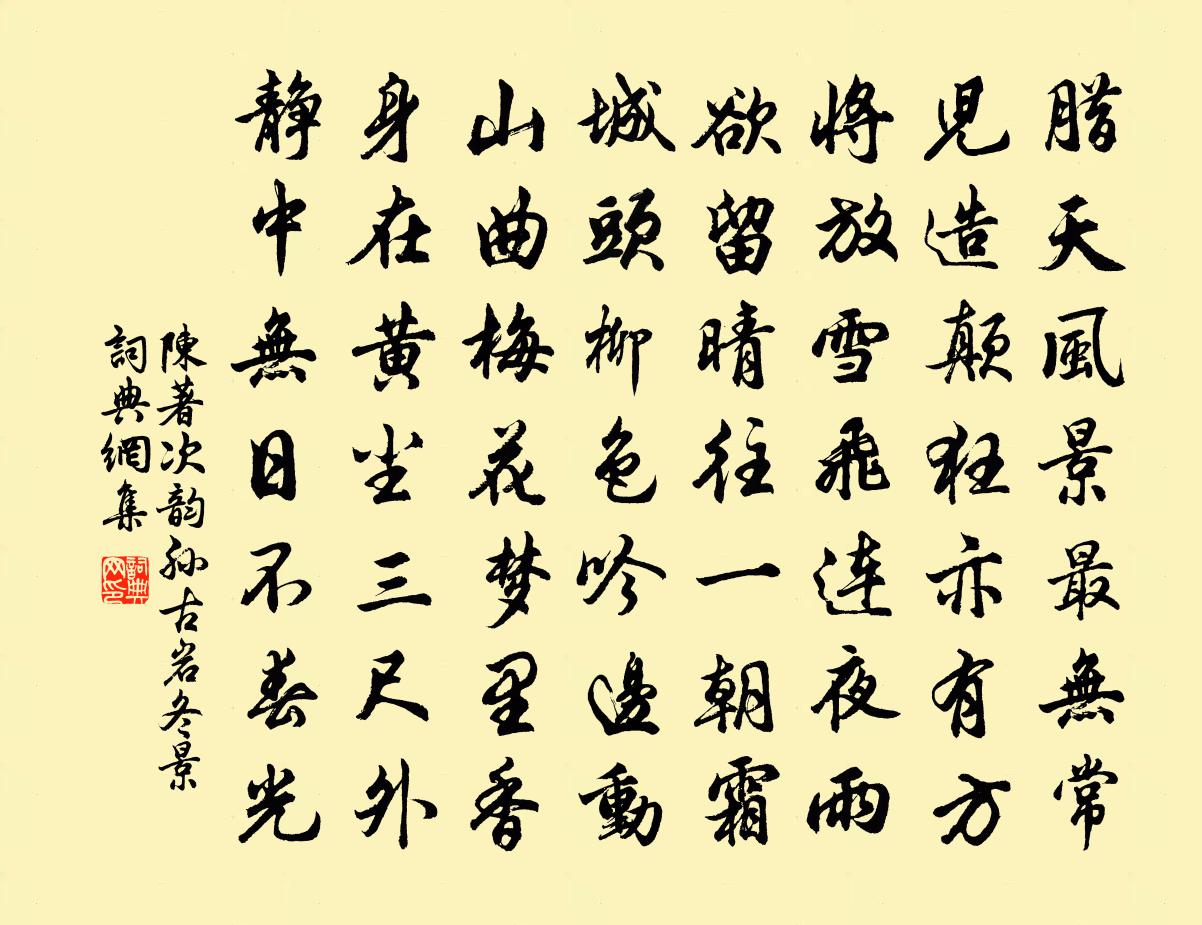 腊天風景最無常
児造顛狂亦有方
将放雪飛連夜雨
欲留晴往一朝霜
城頭柳色吟邊動
山曲梅花梦里香
身在黄尘三尺外
静中無日不春光
陳著次韵孙古岩冬景
詞典網集
詞典网印